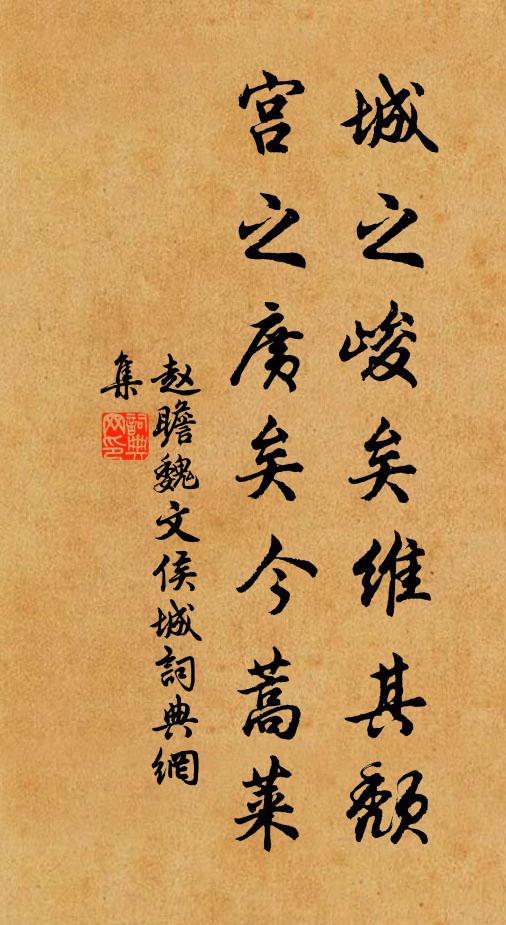 城之峻矣维其颓
宫之广矣今蒿莱
赵瞻魏文侯城詞典網
集
詞典
网印